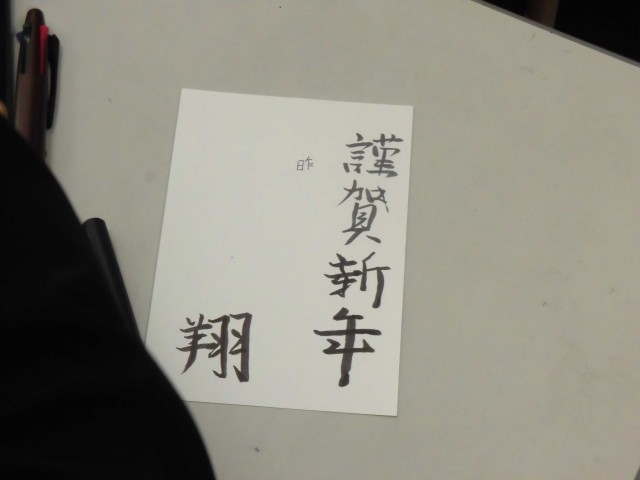 謹賀新年
昨
翔